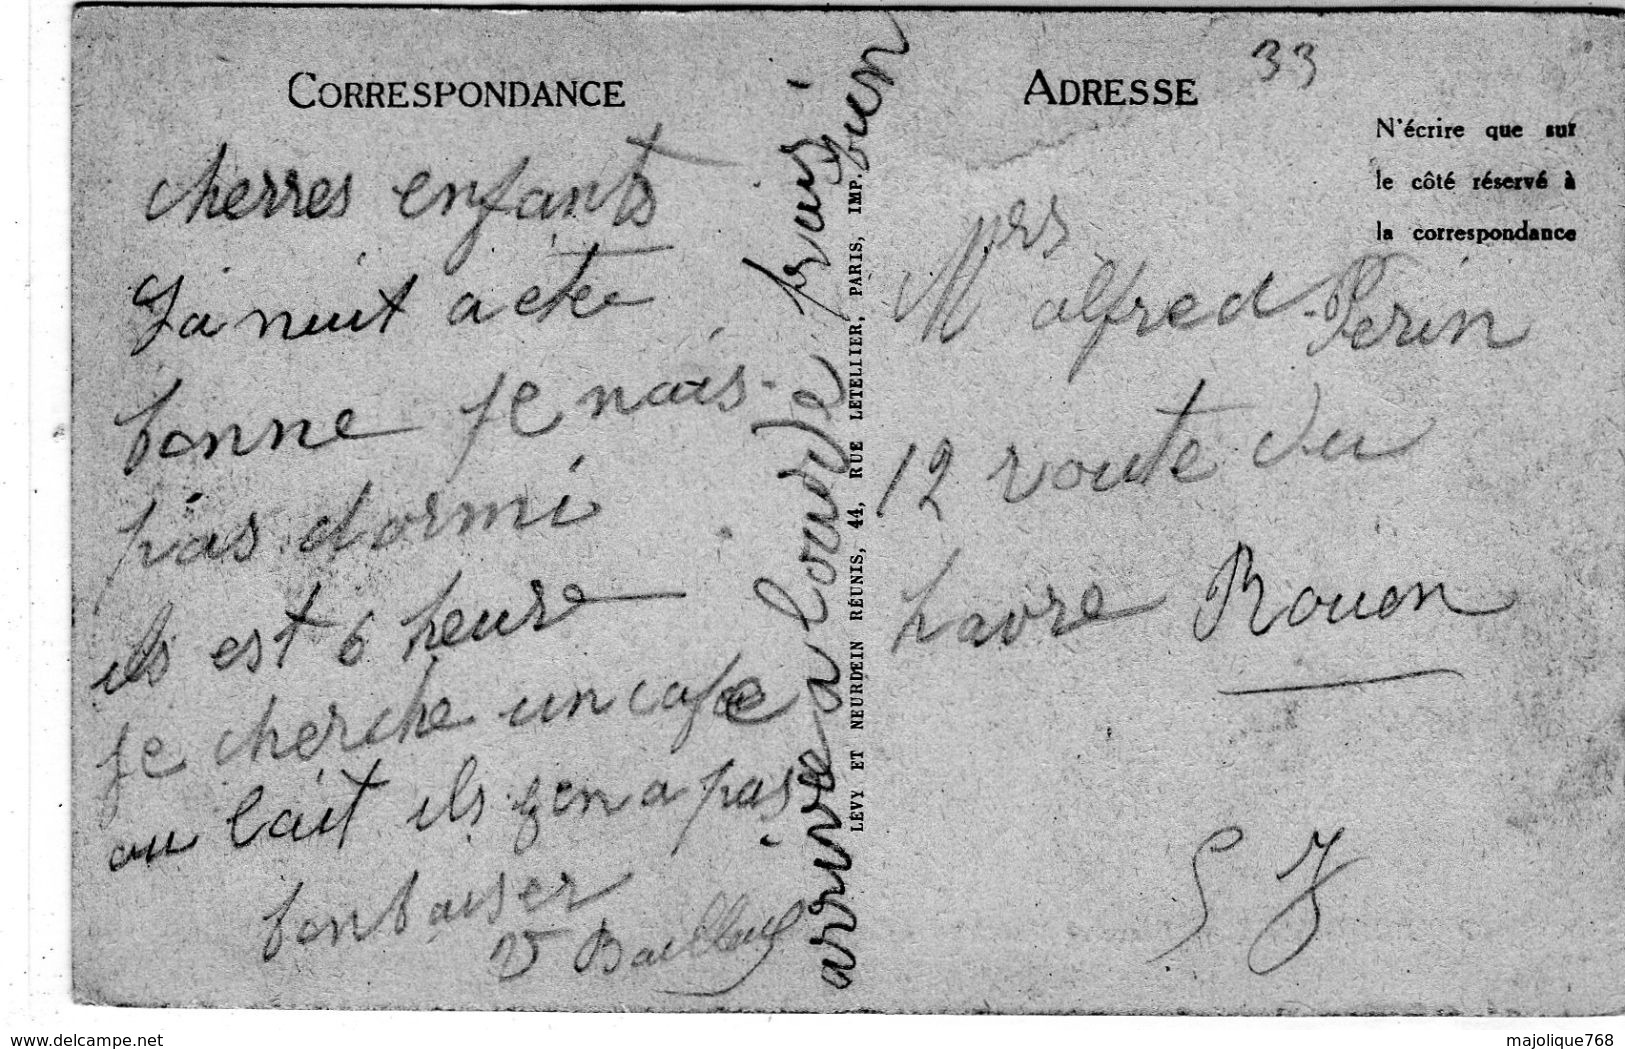 CORRESPONDANCE
cherres enfants
Ja nuit a etée
bonne je nais
pas dormi
ils est 6 heure
je cherche un cafee
au lait ils gen a pas
bon baiser
V
arrive a lourde
bien
LÉVY ET NEURDEIN RÉUNIS, 44, RUE LETELLIER, PARIS, IMP.
ADRESSE
33
N'écrire que sur
le côté réservé à
la correspondance
Mrs alfred Perin
12 route du
havre Rouen
S J
www.delcampe.net
majolique768